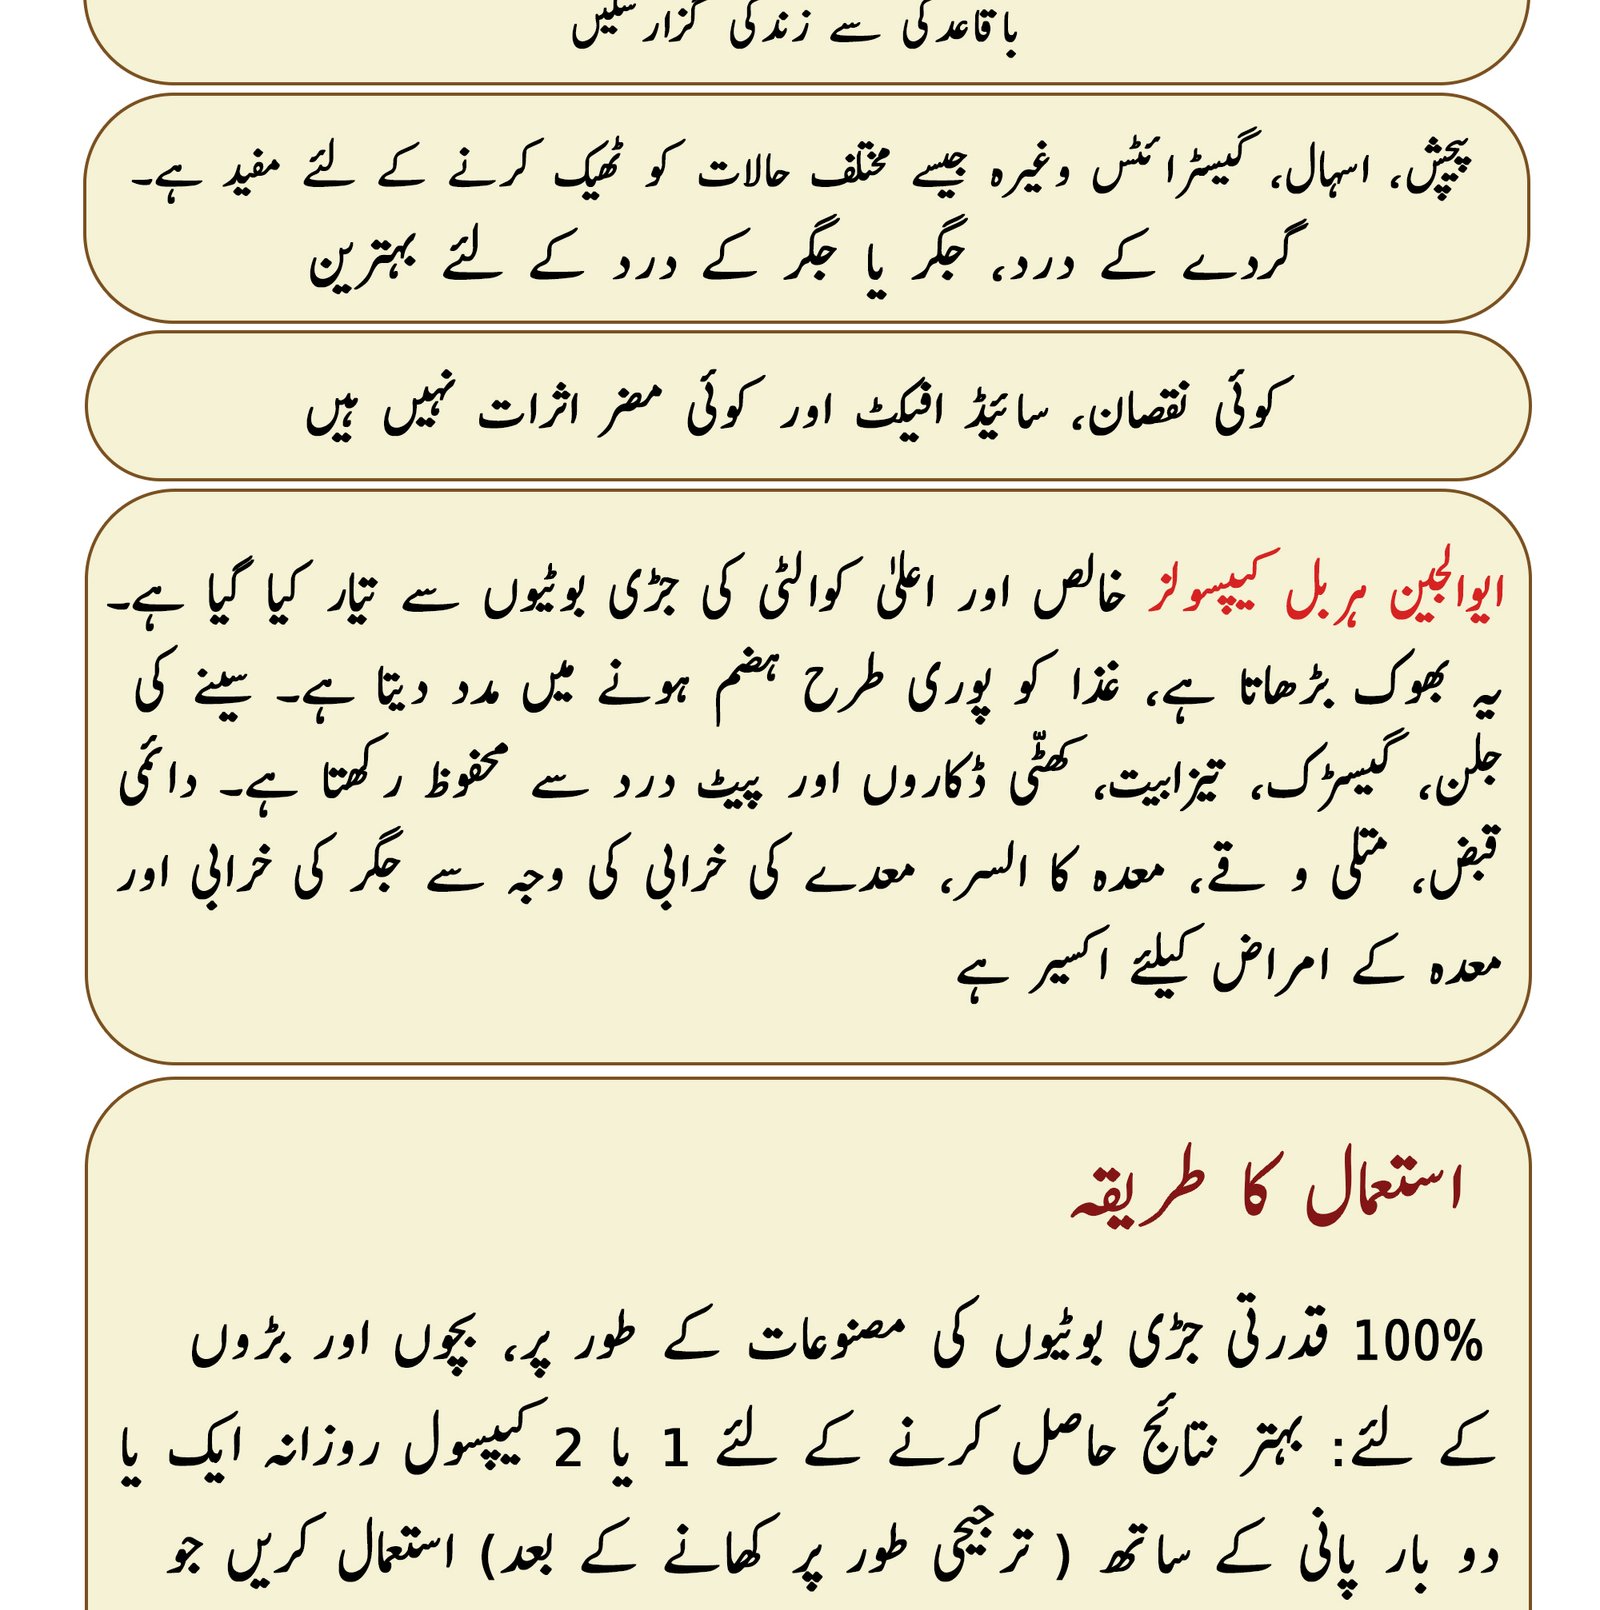 باقاعدگی سے زندگی گزار سکیں
پیچش، اسہال، گیسٹرائٹس وغیرہ جیسے مختلف حالات کو ٹھیک کرنے کے لئے مفید ہے۔
گردے کے درد، جگر یا جگر کے درد کے لئے بہترین
کوئی نقصان، سائیڈ افیکٹ اور کوئی مضر اثرات نہیں ہیں
ایوالجین ہربل کیپسولز خالص اور اعلیٰ کوالٹی کی جڑی بوٹیوں سے تیّار کیا گیا ہے۔
یہ بھوک بڑھاتا ہے، غذا کو پوری طرح ہضم ہونے میں مدد دیتا ہے۔ سینے کی
جلن، گیسڑک، تیزابیت، کھٹّی ڈکاروں اور پیٹ درد سے محفوظ رکھتا ہے۔ دائمی
قبض، متلی و قے، معدہ کا السر، معدے کی خرابی کی وجہ سے جگر کی خرابی اور
معدہ کے امراض کیلئے اکسیر ہے
استعمال کا طریقہ
100% قدرتی جڑی بوٹیوں کی مصنوعات کے طور پر، بچوں اور بڑوں
کے لئے: بہتر نتائج حاصل کرنے کے لئے 1 یا 2 کیپسول روزانہ ایک یا
دو بار پانی کے ساتھ ( ترجیحی طور پر کھانے کے بعد) استعمال کریں جو